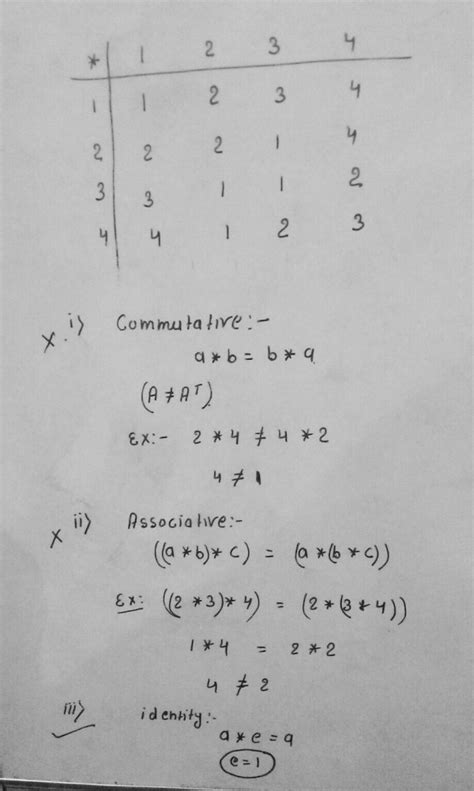 * | 1 2 3 4
1 | 1 2 3 4
2 | 2 2 1 4
3 | 3 1 1 2
4 | 4 1 2 3
x. i> Commutative:-
a * b = b * a
(A ≠ Aᵀ)
Ex:- 2 * 4 ≠ 4 * 2
4 ≠ 1
x ii> Associative:-
((a * b) * c) = (a * (b * c))
Ex: ((2 * 3) * 4) = (2 * (3 * 4))
1 * 4 = 2 * 2
4 ≠ 2
iii> identity:-
a * e = a
e = 1